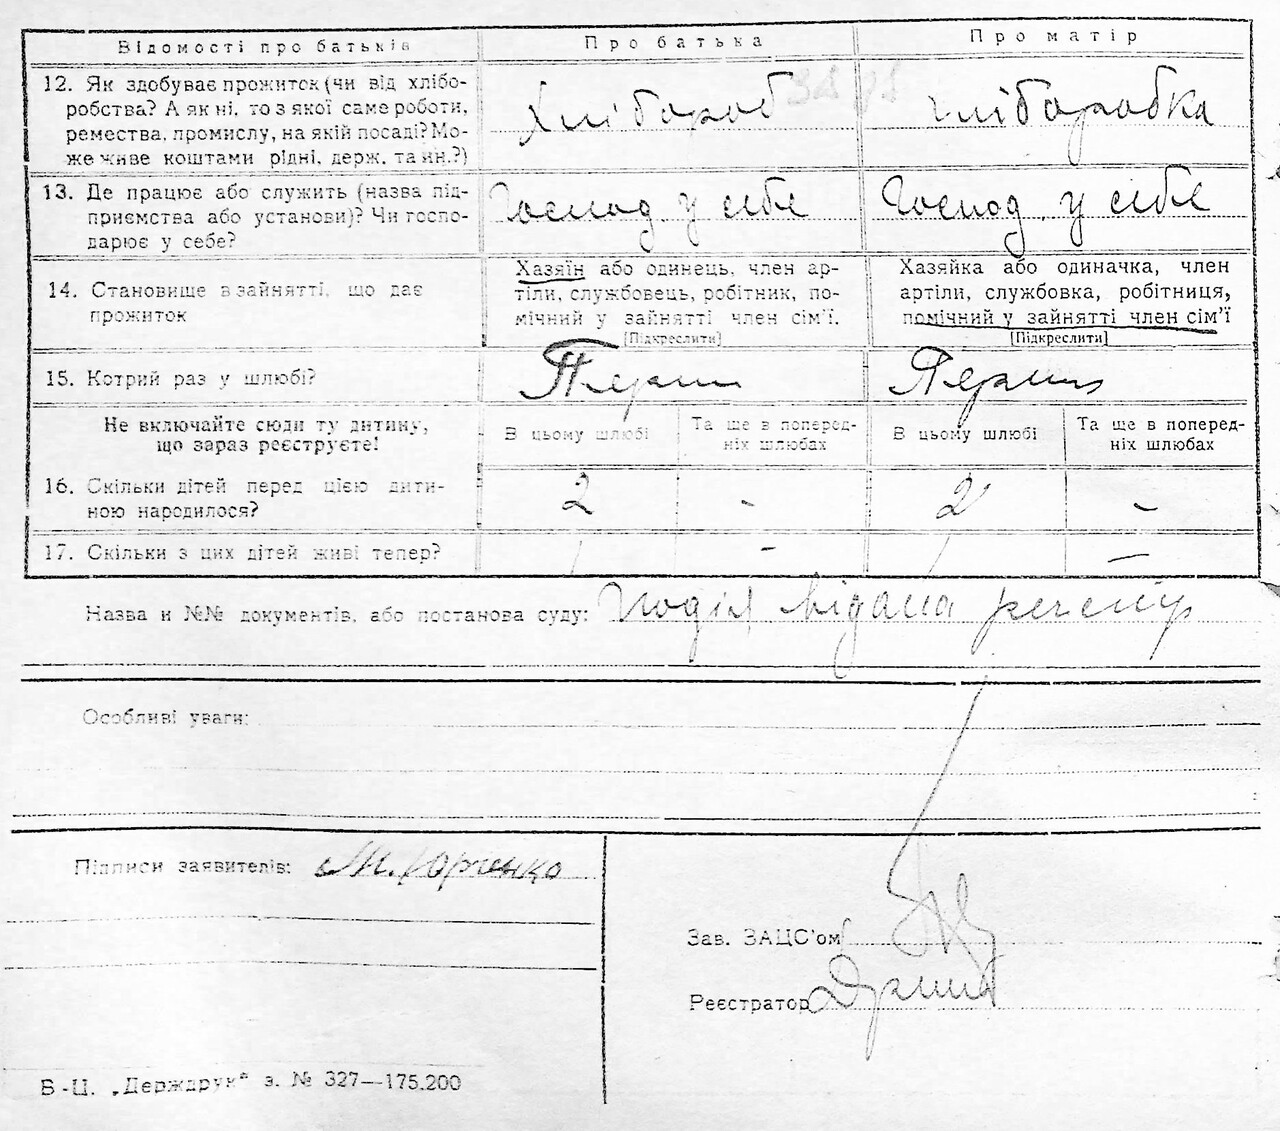 Відомості про батьків
Про батька
Про матір
12. Як здобуває прожиток (чи від хлібо-
робства? А як ні, то з якої саме роботи,
ремества, промислу, на якій посаді? Мо-
же живе коштами рідні, держ. та ин.?)
Хлібороб
хліборобка
13. Де працює або служить (назва під-
приємства або установи)? Чи госпо-
дарює у себе?
Господ. у себе
Господ. у себе
14. Становище в зайнятті, що дає
прожиток
Хазяїн або одинець, член ар-
тіли, службовець, робітник, по-
мічний у зайнятті член сім'ї.
[Підкреслити]
Хазяйка або одиначка, член
артіли, службовка, робітниця,
помічний у зайнятті член сім'ї
[Підкреслити]
15. Котрий раз у шлюбі?
Перший
Перший
Не включайте сюди ту дитину,
що зараз реєструєте!
В цьому шлюбі
Та ще в поперед-
ніх шлюбах
В цьому шлюбі
Та ще в поперед-
ніх шлюбах
16. Скільки дітей перед цією дити-
ною народилося?
2
-
2
-
17. Скільки з цих дітей живі тепер?
1
-
1
—
Назва и №№ документів, або постанова суду:
Особливі уваги:
Підписи заявителів: М. Юрченко
Зав. ЗАЦС'ом
Реєстратор
Б-Ц. „Держдрук" з. № 327—175.200